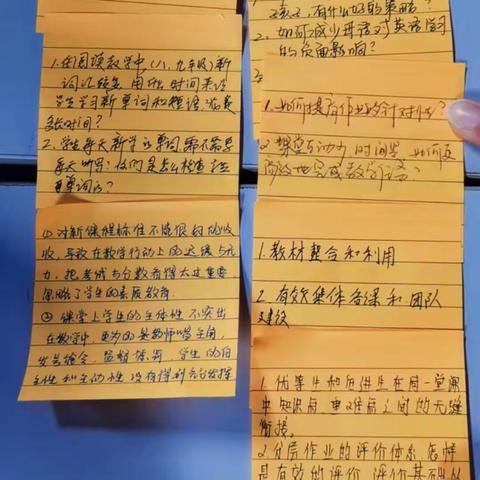 1.在阅读教学中(八、九年级)新
词汇较多,用什么时间来让
学生学习新单词和短语,花费
多长时间?
2.学生每天新学的单词需不需要
每天听写?你们是怎么检查学生
背单词的?
① 对新课程标准不能很好的吸
收,导致在教学行动上的迟缓与无
力,把考试与分数看得太过重要
忽略了学生的素质教育.
② 课堂上学生的主体性不突出
在教学中,更多的是教师唱主角,
学生的自
主性和主动性没有得到充分发挥
有什么好的策略?
2.如何减少母语对英语学习
的负面影响?
1.如何提高作业的针对性?
2.课堂互动 时间紧 如何更
高效地完成教学
1.教材整合和利用
2.有效集体备课和团队
建设
1.优等生和后进生在同一堂课
中知识点,重难点之间的无缝
衔接。
2.分层作业的评价体系,怎样
是有效的评价,评价基础从